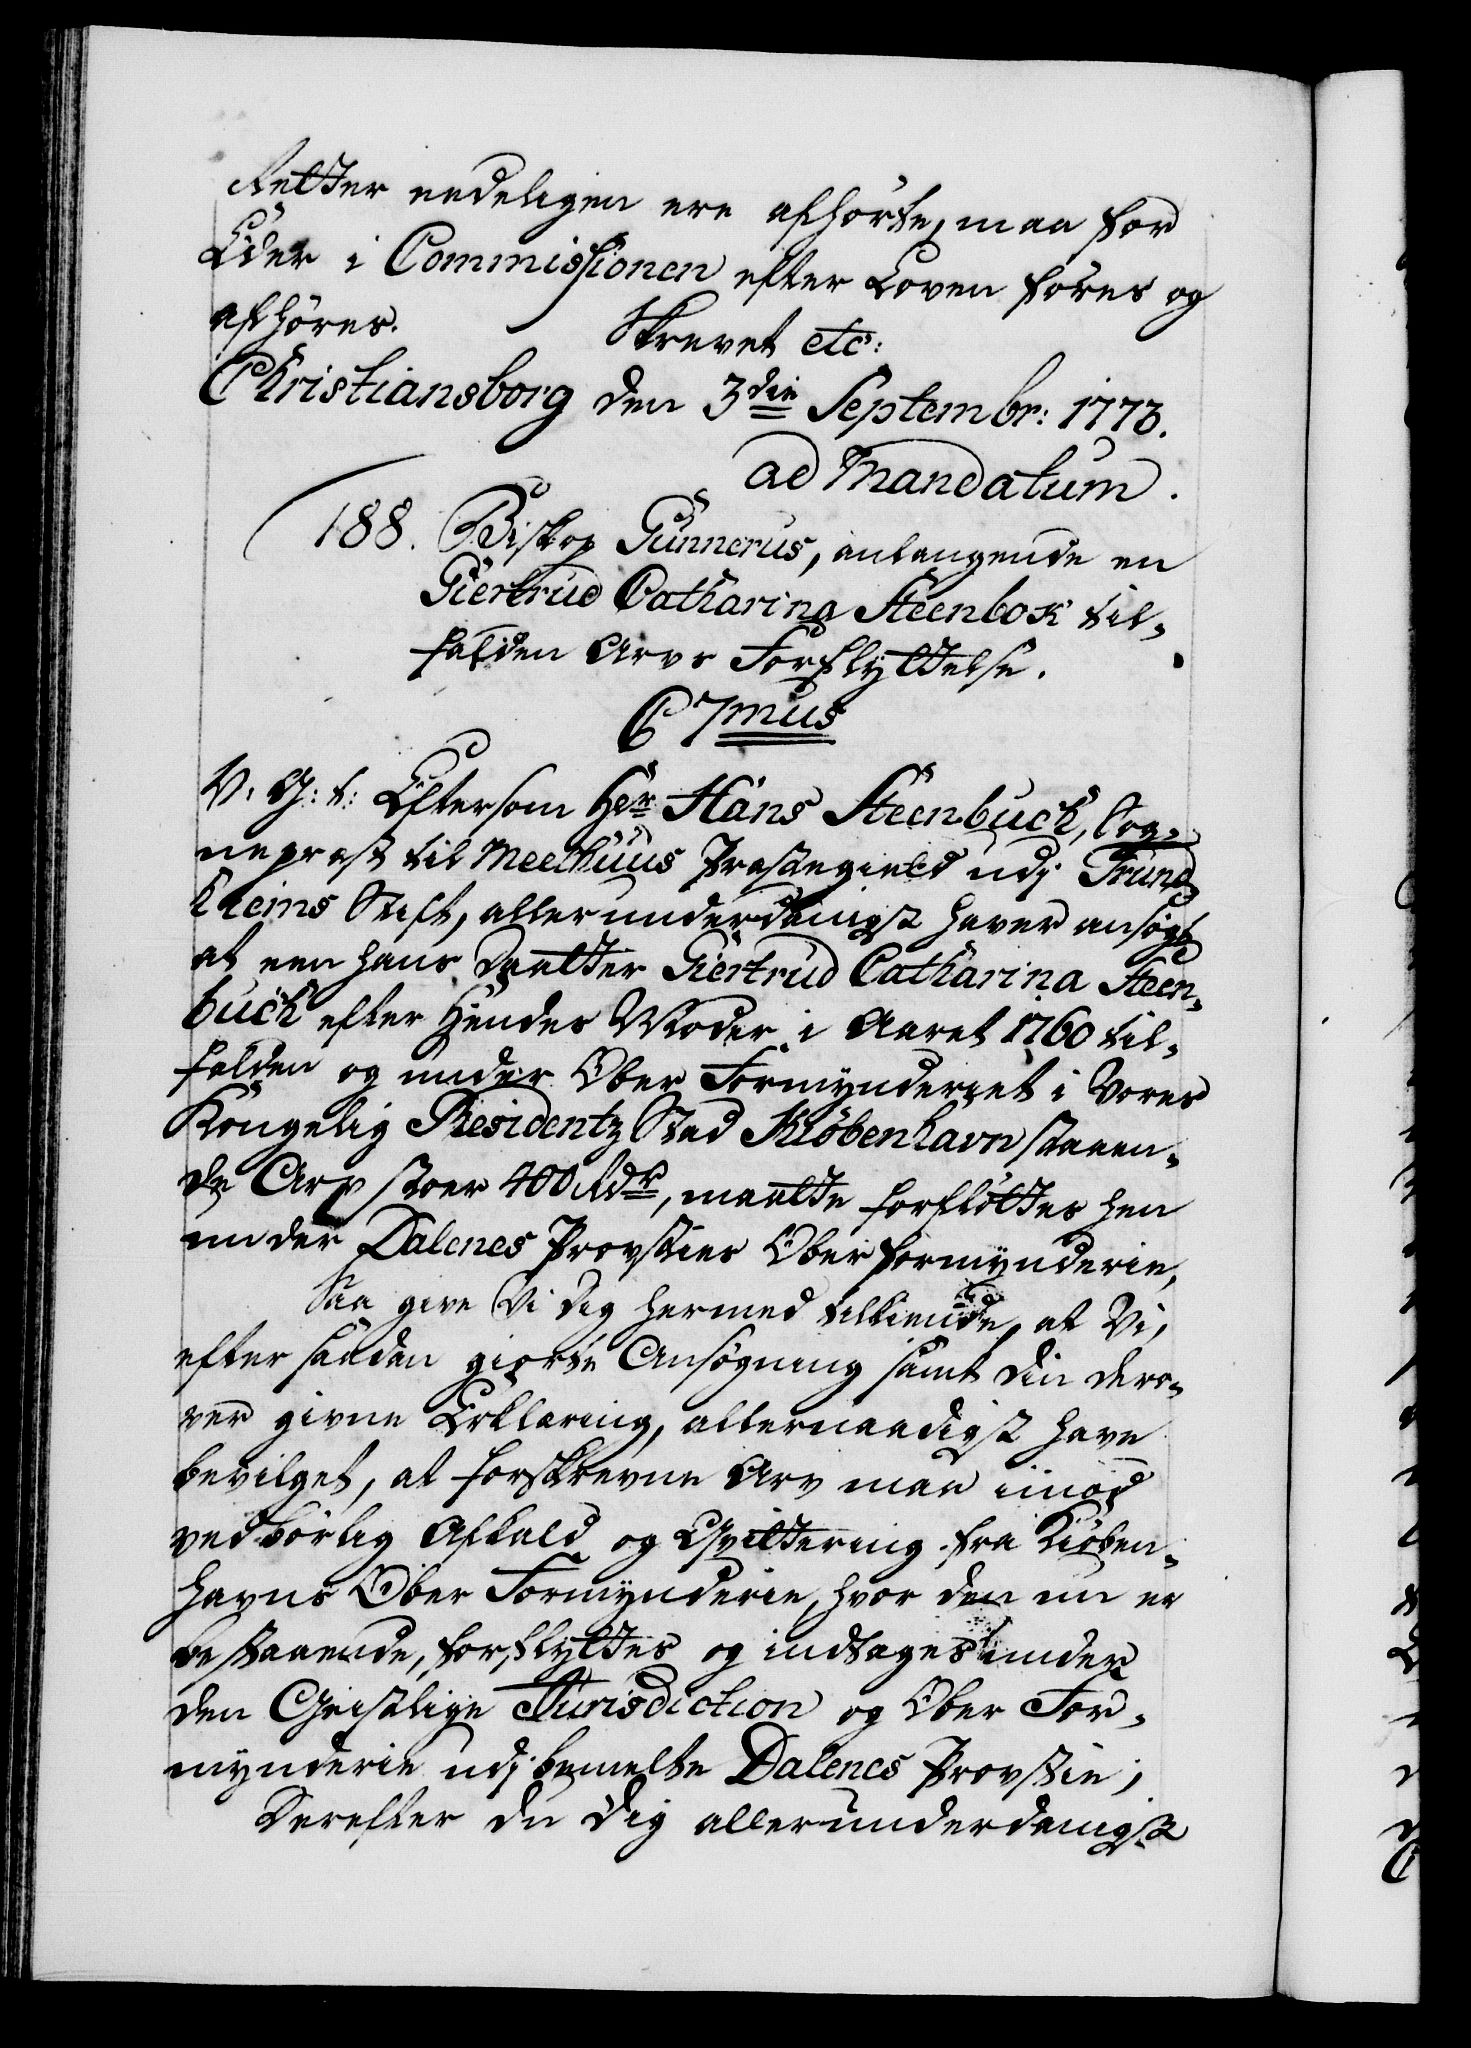 Retter endeligen ere afhørte, maa for
Eder i Commissionen efter Loven føres og
afhøres. Skrevet etc:
Christiansborg den 3die Septembr: 1773.
ad Mandatum.
188. Biskop Gunnerus, anlangende en
Giertrud Catharina Steenbok til-
falden Arvs Forflyttelse.
C 7mus
V. G: t: Eftersom Hr. Hans Steenbuch, Sog-
neprest til Meelhuus Præstegield udj Trund-
hiems Stift, allerunderdanigst haver ansøgt
at een hans Daatter Giertrud Catharina Steen-
buch efter Hendes Moder i Aaret 1760 til-
falden og under Ober Formynderiet i Vores
Kongelig Residentz Stad Kiøbenhavn staaen-
de Arv stoer 400 Rdr, maatte forfløttes hen
under Dalenes Provsties Oberformynderie,
Saa give Vi Dig hermed tilkiende, at Vi,
efter saadan giorte Ansøgning samt Din dero-
ver givne Erklæring, allernaadigst have
bevilget, at forskrevne Arv maa imod
vedbørlig Afkald og Qvittering fra Kiøben-
havns Ober Formynderie, hvor den nu er
bestaaende, forflyttes og indtages under
den Geistlige Jurisdiction og Ober For-
mynderie udj bemelte Dalenes Provstie;
Derefter du Dig allerunderdanigst